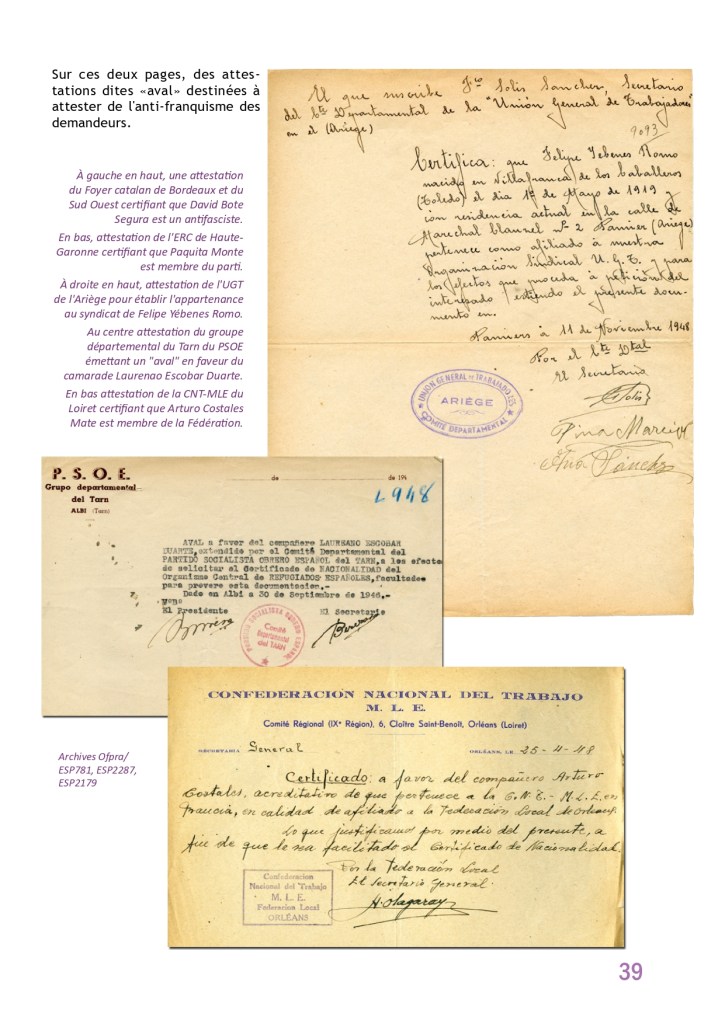 Sur ces deux pages, des attes-
tations dites «aval» destinées à
attester de l'anti-franquisme des
demandeurs.
À gauche en haut, une attestation
du Foyer catalan de Bordeaux et du
Sud Ouest certifiant que David Bote
Segura est un antifasciste.
En bas, attestation de l'ERC de Haute-
Garonne certifiant que Paquita Monte
est membre du parti.
À droite en haut, attestation de l'UGT
de l'Ariège pour établir l'appartenance
au syndicat de Felipe Yébenes Romo.
Au centre attestation du groupe
départemental du Tarn du PSOE
émettant un "aval" en faveur du
camarade Laurenao Escobar Duarte.
En bas attestation de la CNT-MLE du
Loiret certifiant que Arturo Costales
Mate est membre de la Fédération.
El que suscribe Fco Solis Sanchez, Secretario
del Cte Departamental de la "Unión General de Trabajadores"
en el (Ariège)
9093
Certifica: que Felipe Iebenes Romo
nacido en Villafranca de los Caballeros
(Toledo) el dia 1º de Mayo de 1919 y
con residencia actual en la calle de
Marechal Clausel nº 2 Pamier (Ariege)
pertenece como afiliado à nuestra
Organización Sindical U.G.T. y para
los efectos que proceda à petición del
interesado extiendo el presente docu-
mento en.
Pamiers à 11 de Noviembre 1948
Por el Cte Dtal
El Secretario
Solis
UNION GENERAL DE TRABAJADORES
ARIÉGE
COMITÉ DEPARTAMENTAL
P. S. O. E.
Grupo departamental
del Tarn
ALBI (Tarn)
de de 194
1.948
AVAL a favor del compañero LAUREANO ESCOBAR
DUARTE, extendido por el Comité Departamental del
PARTIDO SOCIALISTA OBRERO ESPAÑOL del TARN, a los efectos
de solicitar el Certificado de NACIONALIDAD del
Organismo Central de REFUGIADOS ESPAÑOLES, facultades
para proveer esta documentacion.-
Dado en Albi a 30 de Septiembre de 1946.-
VºBº
El Presidente El Secretario
PARTIDO SOCIALISTA OBRERO ESPAÑOL
Comité
Departamental
del TARN
CONFEDERACION NACIONAL DEL TRABAJO
M. L. E.
Comité Régional (IXe Région), 6, Cloître Saint-Benoît, Orléans (Loiret)
SECRETARIA General ORLÉANS, LE 25-11-48
Certificado: a favor del compañero Arturo
Costales, acreditativo de que pertenece a la C.N.T.- M.L.E. en
Francia, en calidad de afiliado a la Federación Local de Orleans.
Lo que justificamos por medio del presente, a
fin de que le sea facilitado el Certificado de Nacionalidad.
Por la Federación Local
El Secretario General.
Confederacion
Nacional del Trabajo
M. L. E.
Federacion Local
ORLÉANS
Archives Ofpra/
ESP781, ESP2287,
ESP2179
39